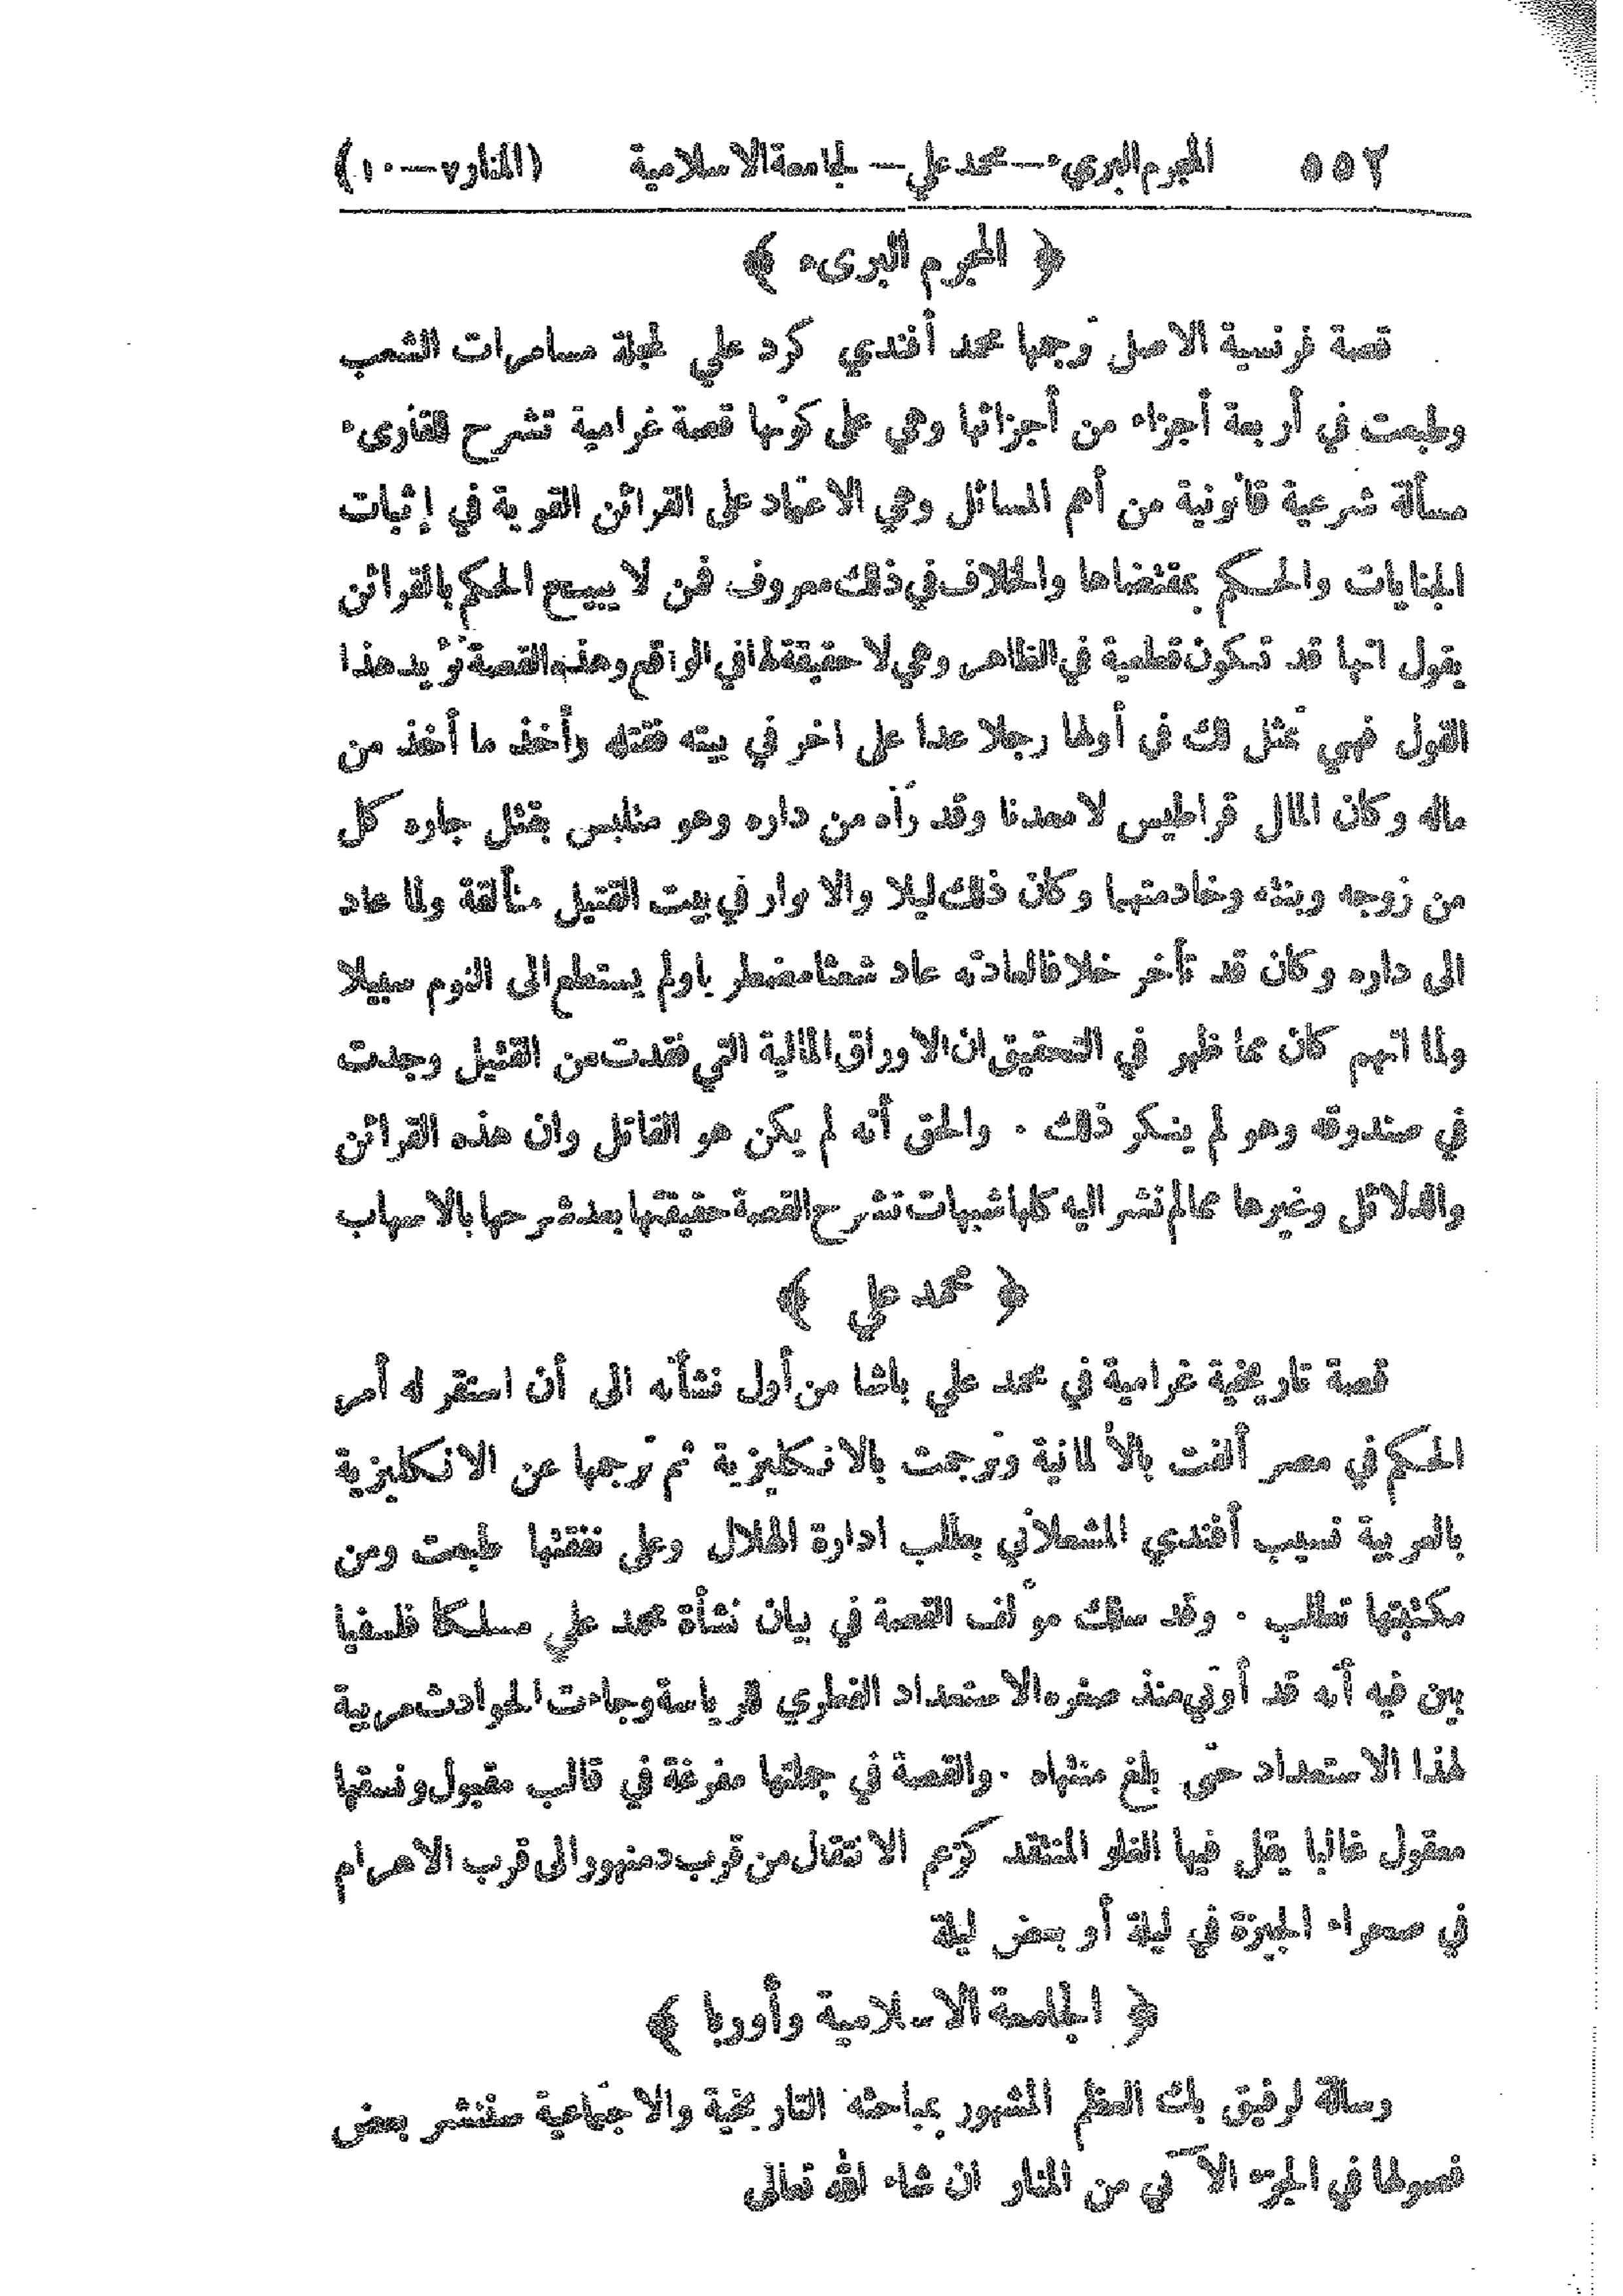 ٥٥٢ المجرم البريء — محمد علي — الجامعة الاسلامية (المنار ٧ — ١٠)
﴿ المجرم البرىء ﴾
قصة فرنسية الاصل ترجمها محمد أفندي كرد علي لمجلة مسامرات الشعب
وطبعت في أربعة أجزاء من أجزائها وهي على كونها قصة غرامية تشرح للقارىء
مسألة شرعية قانونية من أهم المسائل وهي الاعتماد على القرائن القوية في إثبات
الجنايات والحكم بمقتضاها والخلاف في ذلك معروف فمن لا يبيح الحكم بالقرائن
يقول انها قد تكون قطعية في الظاهر وهي لا حقيقة لها في الواقع وهذه القصة تؤيد هذا
القول فهي تمثل لك في أولها رجلا عدا على اخر في بيته فقتله وأخذ ما أخذ من
ماله وكان المال قراطيس لا معدنا وقد رآه من داره وهو متلبس بقتل جاره كل
من زوجه وبنته وخادمتهما وكان ذلك ليلا والانوار في بيت القتيل متألقة ولما عاد
الى داره وكان قد تأخر خلافا لعادته عاد شعثا مضطربا ولم يستطع الى النوم سبيلا
ولما اتهم كان مما ظهر في التحقيق ان الاوراق المالية التي فقدت من القتيل وجدت
في صندوقه وهو لم ينكر ذلك . والحق أنه لم يكن هو القاتل وان هذه القرائن
والدلائل وغيرها مما لم نشر اليه كلها شبهات تشرح القصة حقيقتها بعد شرحها بالاسهاب
﴿ محمد علي ﴾
قصة تاريخية غرامية في محمد علي باشا من أول نشأته الى أن استقر له أمر
الحكم في مصر ألفت بالألمانية وترجمت بالانكليزية ثم ترجمها عن الانكليزية
بالعربية نسيب أفندي المشعلاني بطلب ادارة الهلال وعلى نفقتها طبعت ومن
مكتبتها تطلب . وقد سلك مؤلف القصة في بيان نشأة محمد علي مسلكا فلسفيا
بين فيه أنه قد أوتي منذ صغره الاستعداد الفطري للرياسة وجاءت الحوادث مربية
لهذا الاستعداد حتى بلغ منتهاه . والقصة في جملتها مفرغة في قالب مقبول ونسقها
معقول غالبا يقل فيها الغلو المنتقد كزعم الانتقال من قرب دمنهور الى قرب الاهرام
في صحراء الجيزة في ليلة أو بعض ليلة
﴿ الجامعة الاسلامية وأوربا ﴾
رسالة لرفيق بك العظم المشهور بمباحثه التاريخية والاجتماعية سننشر بعض
فصولها في الجزء الآتي من المنار ان شاء الله تعالى